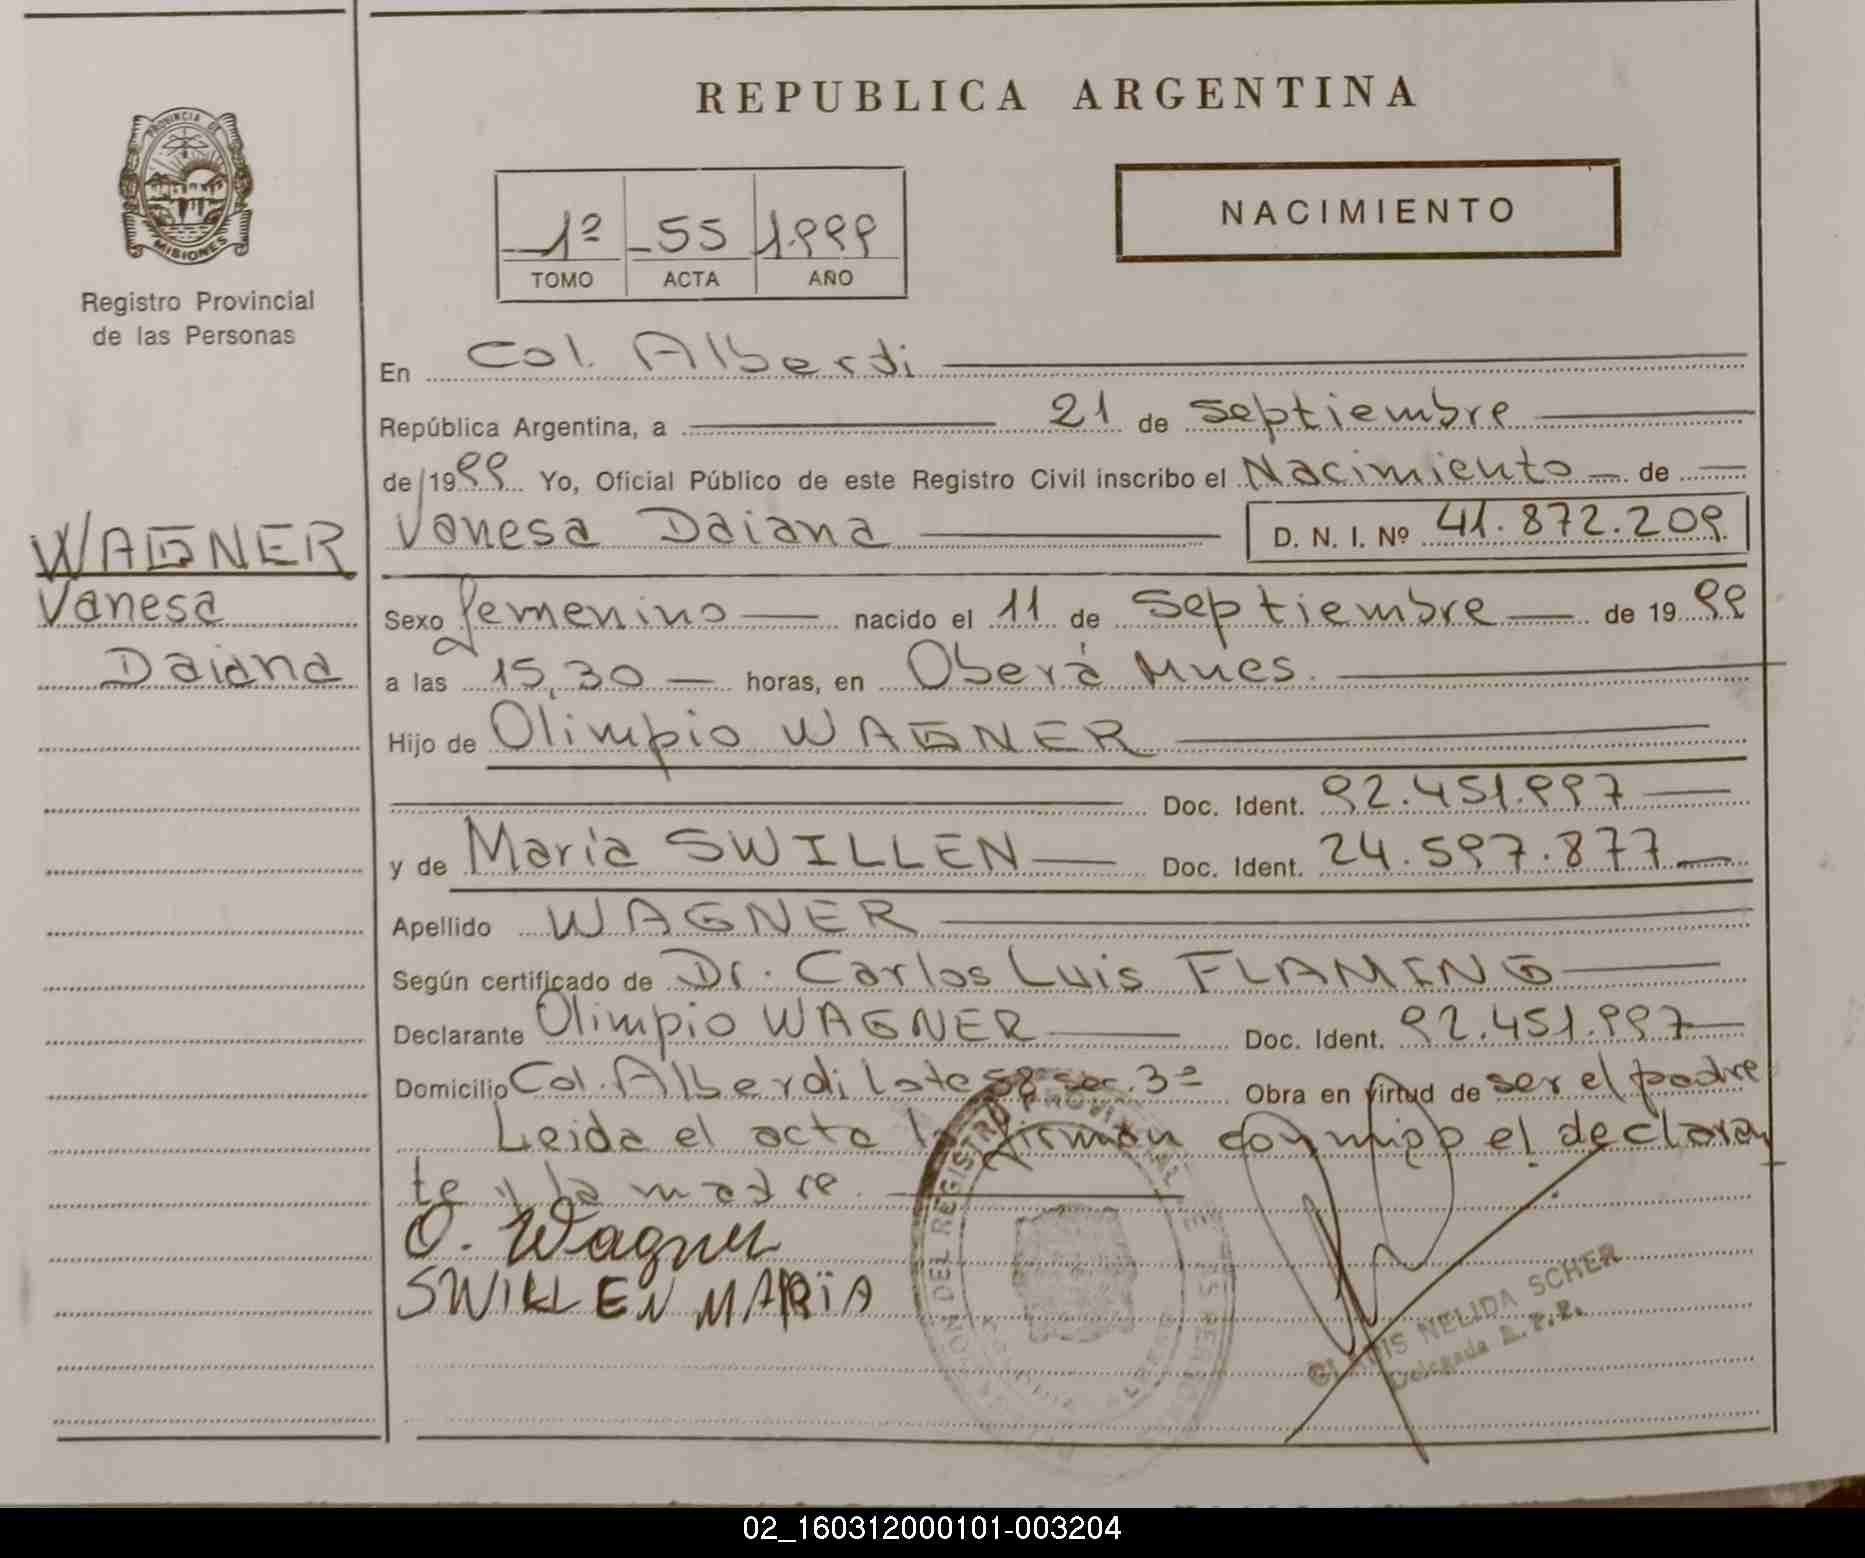 REPUBLICA ARGENTINA
PROVINCIA DE
MISIONES
Registro Provincial
de las Personas
1º 55 1.999
TOMO ACTA AÑO
NACIMIENTO
En Col. Alberdi
República Argentina, a 21 de septiembre
de 1999 Yo, Oficial Público de este Registro Civil inscribo el Nacimiento de
WAGNER
Vanesa
Daiana
Vanesa Daiana D. N. I. Nº 41.872.209
Sexo femenino nacido el 11 de septiembre de 1999
a las 15,30 horas, en Oberá Mnes.
Hijo de Olimpio WAGNER
Doc. Ident. 92.451.997
y de María SWILLEN Doc. Ident. 24.597.877
Apellido WAGNER
Según certificado de Dr. Carlos Luis FLAMING
Declarante Olimpio WAGNER Doc. Ident. 92.451.997
Domicilio Col. Alberdi Lote 58 sec. 3ª Obra en virtud de ser el padre
Leida el acta la firman conmigo el declaran
te y la madre.
O. Wagner
SWILLEN MARÏA
DEL REGISTRO PROVINCIAL
NELIDA SCHER
Delegada R.P.P.
02_160312000101-003204